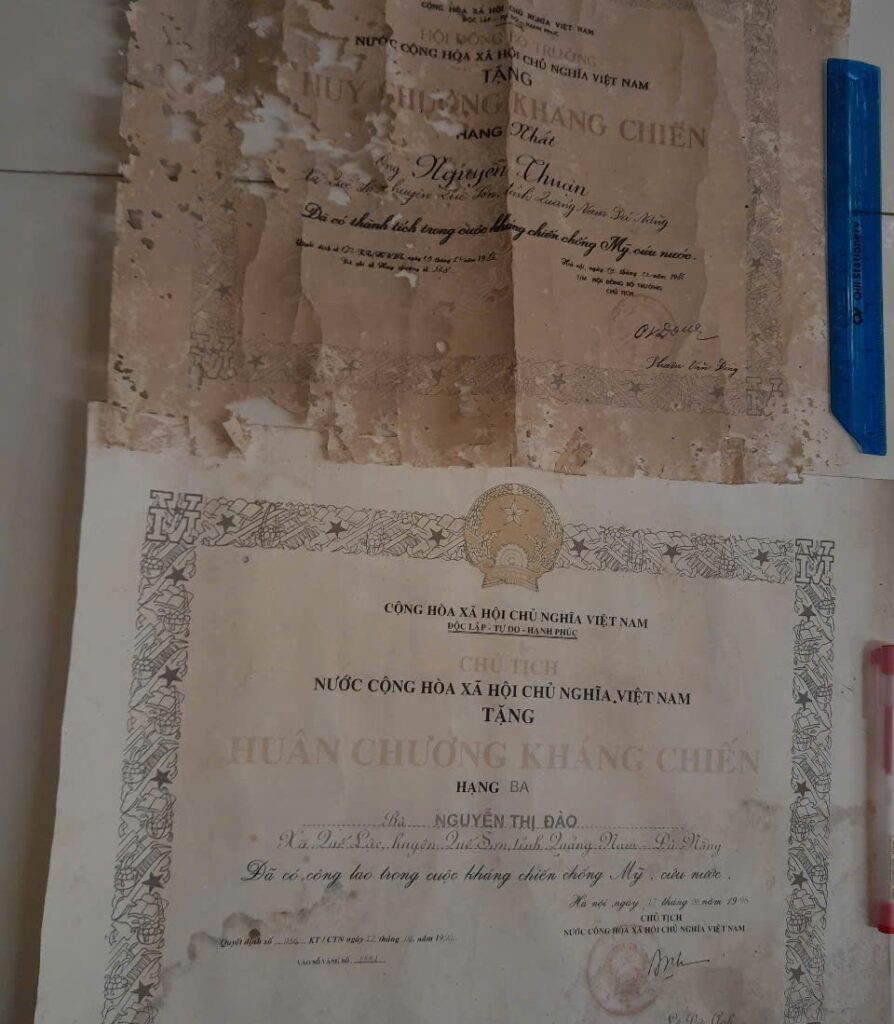 CỘNG HÒA XÃ HỘI CHỦ NGHĨA VIỆT NAM
ĐỘC LẬP - TỰ DO - HẠNH PHÚC
HỘI ĐỒNG BỘ TRƯỞNG
NƯỚC CỘNG HÒA XÃ HỘI CHỦ NGHĨA VIỆT NAM
TẶNG
HUY CHƯƠNG KHÁNG CHIẾN
HẠNG Nhất
Ông Nguyễn Thuân
huyện Quế Sơn, tỉnh Quảng Nam Đà Nẵng
Đã có thành tích trong cuộc kháng chiến chống Mỹ cứu nước.
Hà nội, ngày tháng năm
T/M HỘI ĐỒNG BỘ TRƯỞNG
CHỦ TỊCH
Phạm Văn Đồng
Qili stationery
CỘNG HÒA XÃ HỘI CHỦ NGHĨA VIỆT NAM
ĐỘC LẬP - TỰ DO - HẠNH PHÚC
CHỦ TỊCH
NƯỚC CỘNG HÒA XÃ HỘI CHỦ NGHĨA VIỆT NAM
TẶNG
HUÂN CHƯƠNG KHÁNG CHIẾN
HẠNG BA
Bà NGUYỄN THỊ ĐÀO
Xã Quế Lộc, huyện Quế Sơn, tỉnh Quảng Nam - Đà Nẵng
Đã có công lao trong cuộc kháng chiến chống Mỹ, cứu nước.
Hà nội, ngày tháng năm
CHỦ TỊCH
NƯỚC CỘNG HÒA XÃ HỘI CHỦ NGHĨA VIỆT NAM
Quyết định số KT/CTN ngày tháng năm
VÀO SỔ VÀNG SỐ